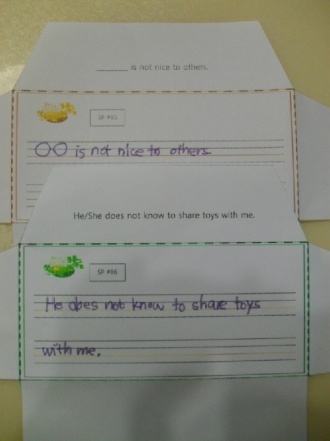 ______ is not nice to others.
SP #85
OO is not nice to others
He/She does not know to share toys with me.
SP #86
He does not know to share toys
with me.